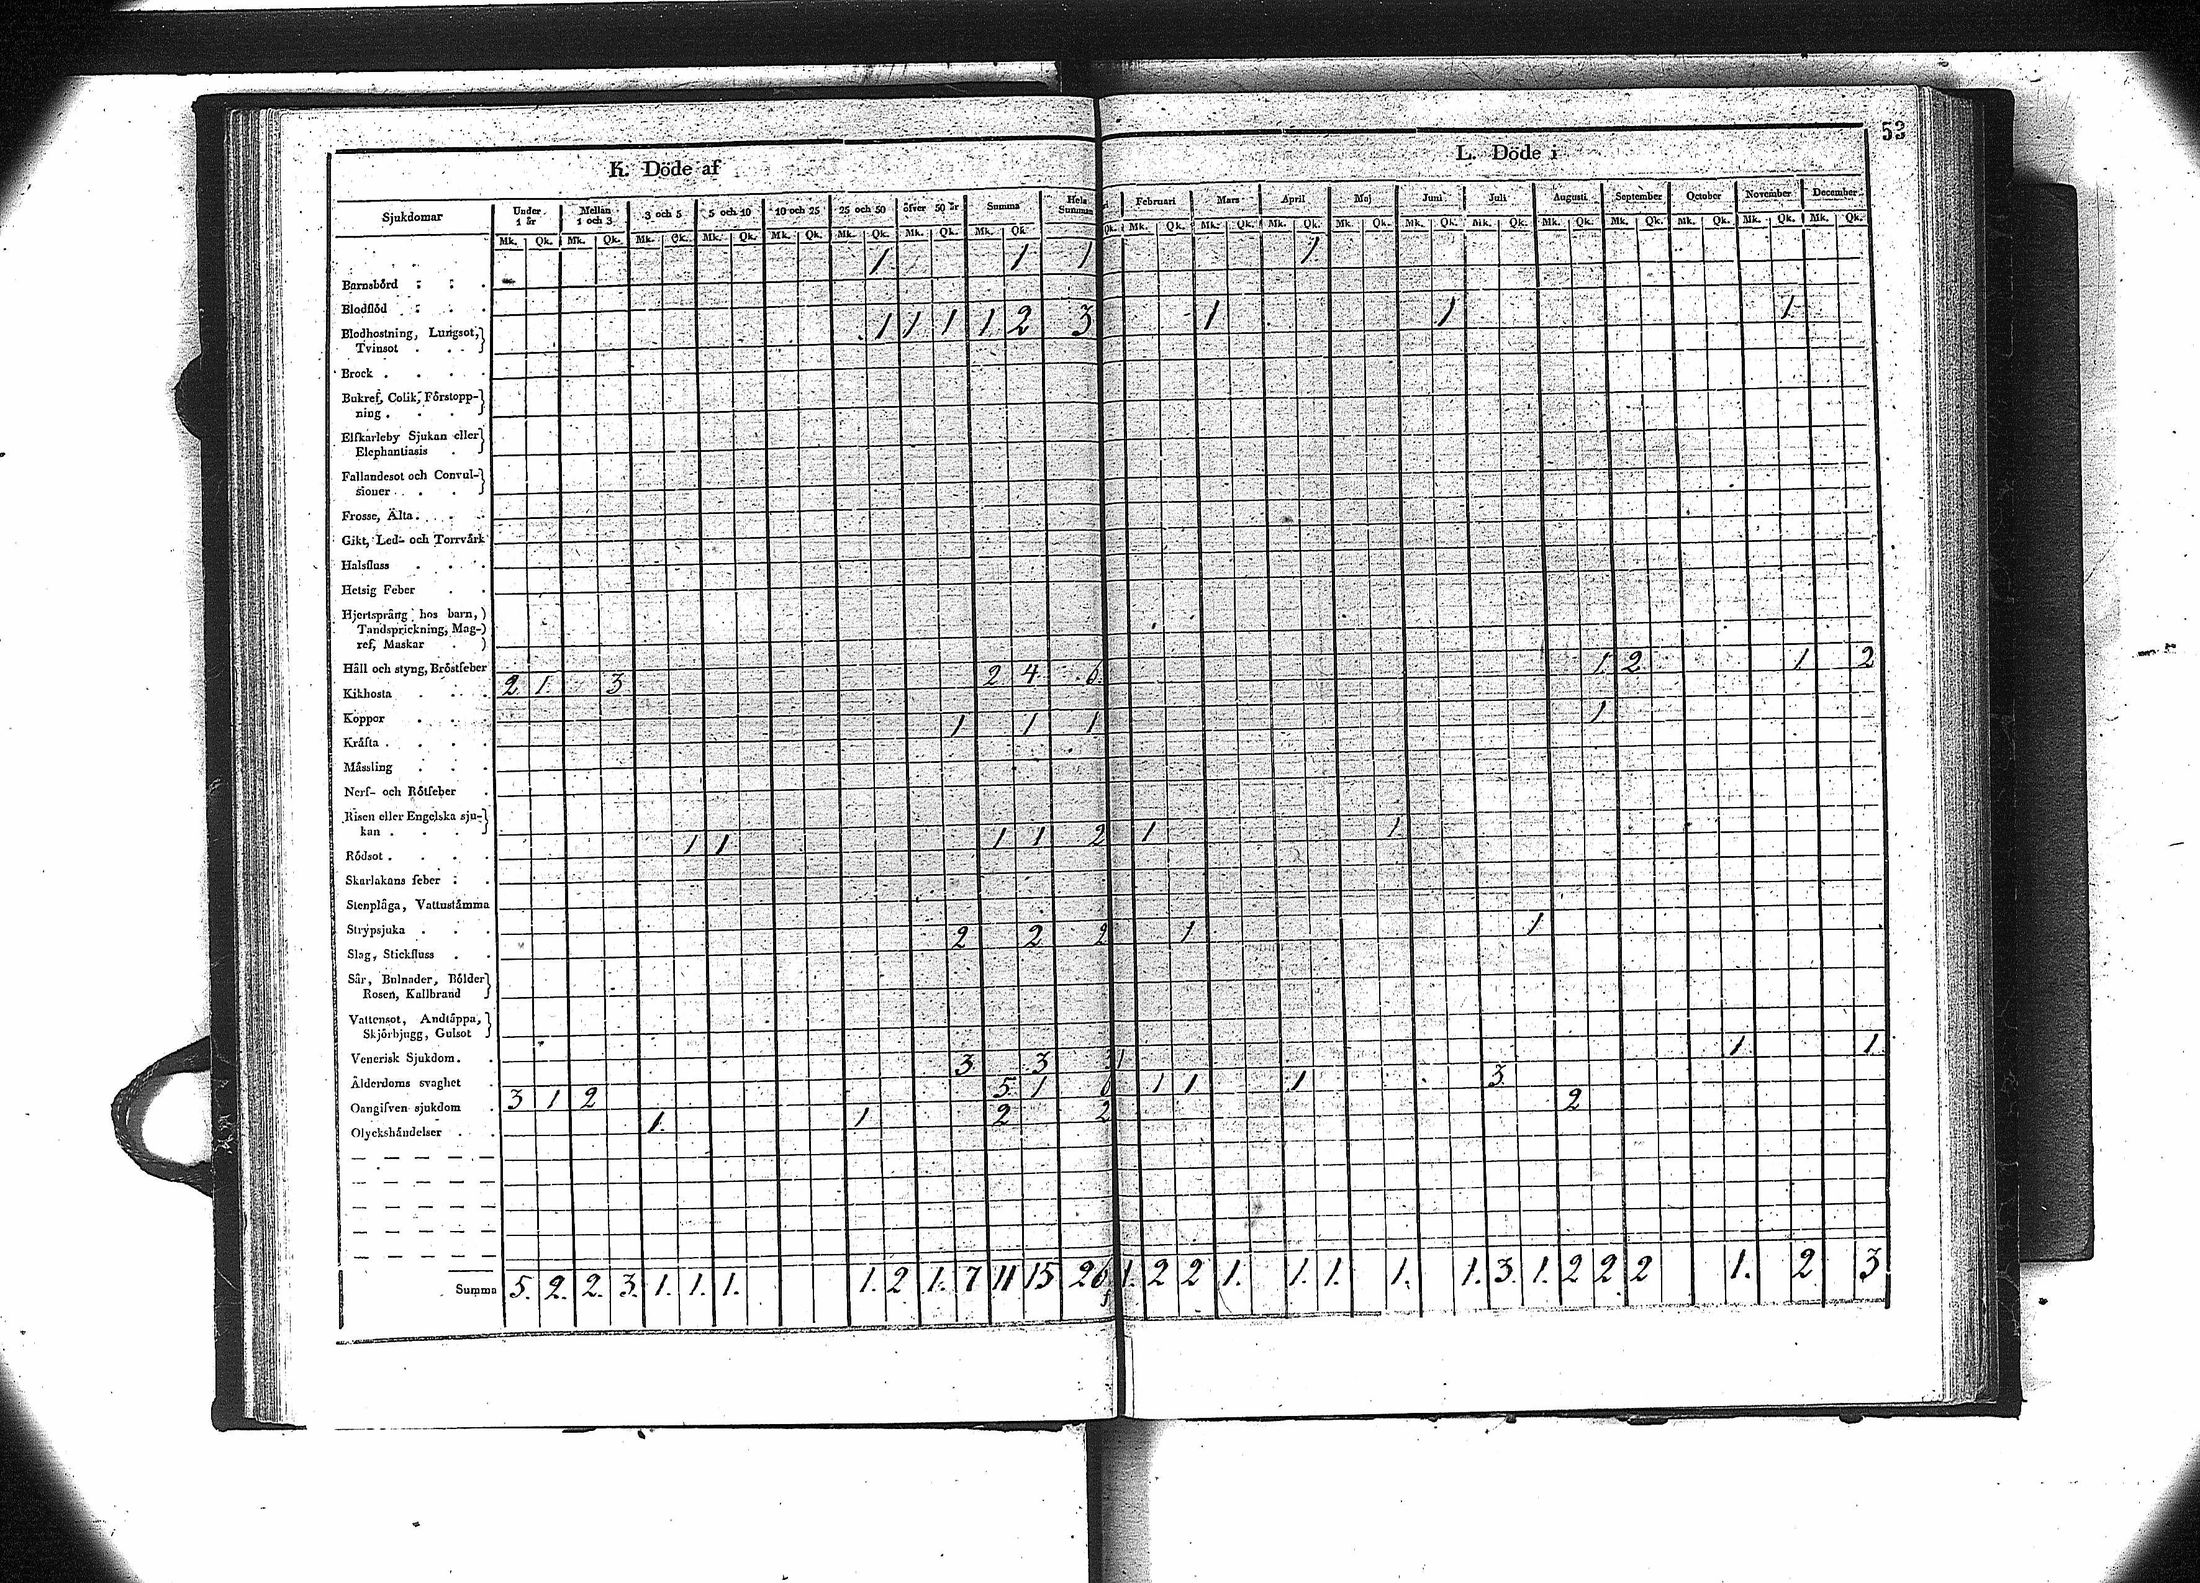 53
K. Döde af
L. Döde i
Sjukdomar Under 1 år Mellan 1 och 3 3 och 5 5 och 10 10 och 25 25 och 50 öfver 50 år Summa Hela Summan Februari Mars April Maj Juni Juli Augusti September October November December
Mk. Qk. Mk. Qk. Mk. Qk. Mk. Qk. Mk. Qk. Mk. Qk. Mk. Qk. Mk. Qk. Qk. Mk. Qk. Mk. Qk. Mk. Qk. Mk. Qk. Mk. Qk. Mk. Qk. Mk. Qk. Mk. Qk. Mk. Qk. Mk. Qk. Mk. Qk.
1 1 1 1
Barnsbörd
Blodflöd
Blodhostning, Lungsot,
Tvinsot 1 1 1 1 2 3 1 1 1
Brock
Bukref, Colik, Förstopp-
ning
Elfkarleby Sjukan eller
Elephantiasis
Fallandesot och Convul-
sioner
Frosse, Älta
Gikt, Led- och Torrvärk
Halsfluss
Hetsig Feber
Hjertsprång hos barn,
Tandsprickning, Mag-
ref, Maskar
Håll och styng, Bröstfeber
Kikhosta 2 1. 3 2 4 6 1 2 1 2
Koppor
Kräfta 1 1 1 1
Mässling
Nerf- och Rötfeber
Risen eller Engelska sju-
kan
Rödsot 1 1 1 1 2 1 1
Skarlakans feber
Stenplåga, Vattustämma
Strypsjuka
Slag, Stickfluss 2 2 2 1 1
Sår, Bulnader, Bölder
Rosen, Kallbrand
Vattensot, Andtäppa,
Skjörbjugg, Gulsot
Venerisk Sjukdom
Ålderdoms svaghet 3 3 3 1 1 1
Oangifven sjukdom 3 1 2 5 1 6 1 1 1 3
Olyckshändelser 1. 1 2 2 2
Summa 5. 2. 2. 3. 1. 1. 1. 1. 2 1. 7 11 15 26 1. 2 2 1. 1. 1. 1. 1. 3. 1. 2 2 2 1. 2 3